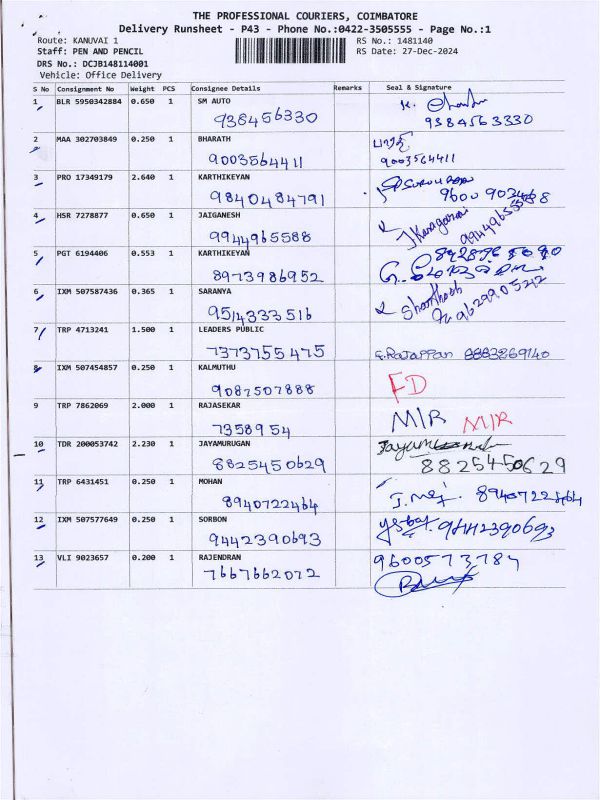 THE PROFESSIONAL COURIERS, COIMBATORE
Delivery Runsheet - P43 - Phone No.:0422-3505555 - Page No.:1
Route: KANUVAI 1 RS No.: 1481140
Staff: PEN AND PENCIL RS Date: 27-Dec-2024
DRS No.: DCJB148114001
Vehicle: Office Delivery
S No Consignment No Weight PCS Consignee Details Remarks Seal & Signature
1 BLR 5950342884 0.650 1 SM AUTO K.
938456330 9384563330
2 MAA 302703849 0.250 1 BHARATH
9003564411 9003564411
3 PRO 17349179 2.640 1 KARTHIKEYAN
9840484791
4 HSR 7278877 0.650 1 JAIGANESH J Kanagaraj
9944965588 9944965588
5 PGT 6194406 0.553 1 KARTHIKEYAN
8973986952
6 IXM 507587436 0.365 1 SARANYA
9514333516 9629905212
7 TRP 4713241 1.500 1 LEADERS PUBLIC
7373755475 E.Rajappan 8883269140
8 IXM 507454857 0.250 1 KALMUTHU
9087507888 FD
9 TRP 7862069 2.000 1 RAJASEKAR
7358954 M/R M/R
10 TDR 200053742 2.230 1 JAYAMURUGAN
8825450629 8825450629
11 TRP 6431451 0.250 1 MOHAN
8940722464 8940722464
12 IXM 507577649 0.250 1 SORBON
9442390693 9442390693
13 VLI 9023657 0.200 1 RAJENDRAN 9600573787
7667662072